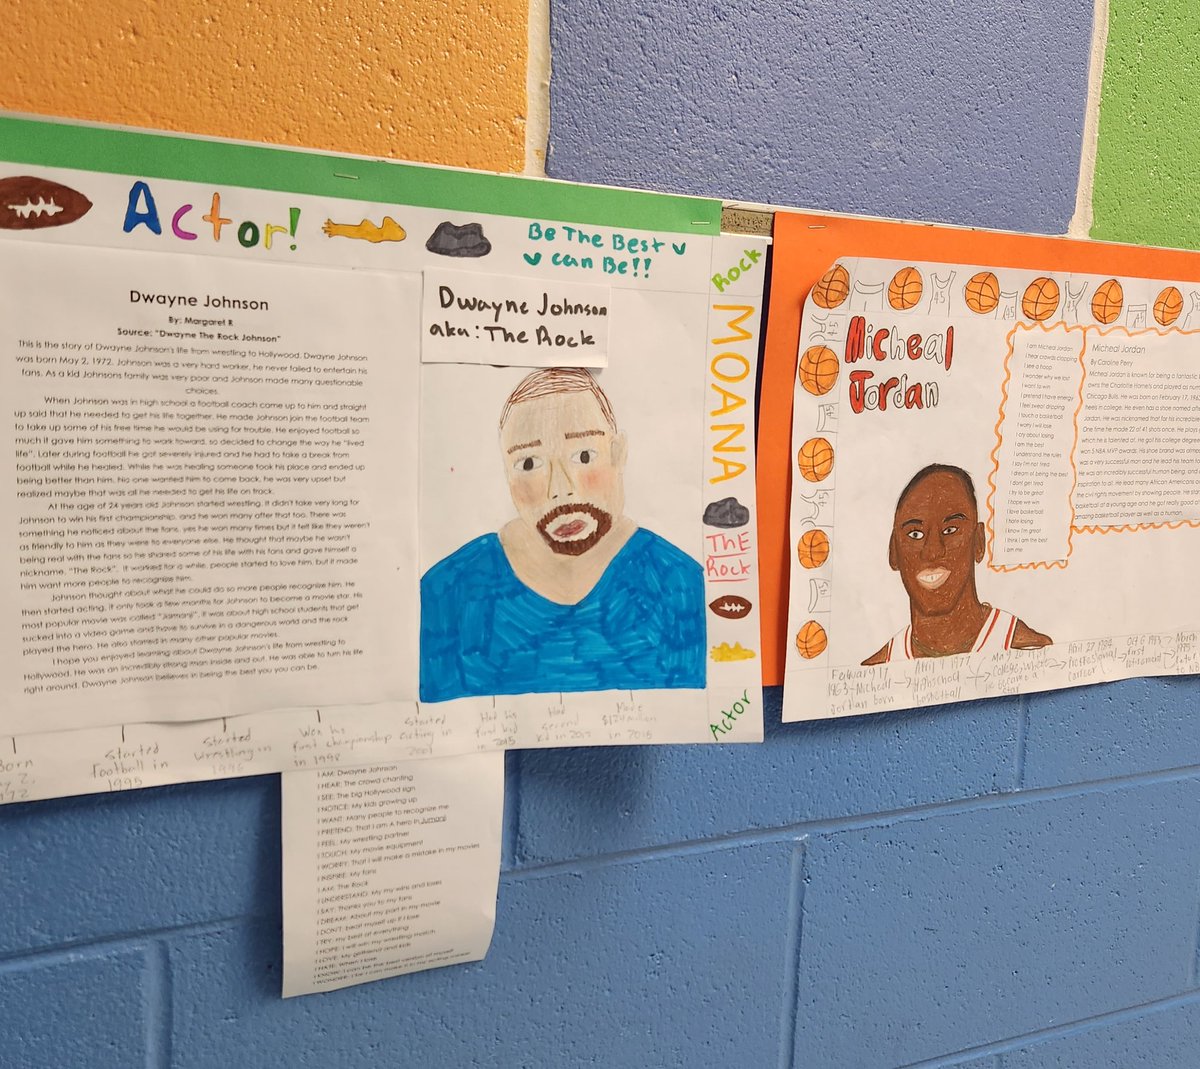 Actor!
Be The Best
can Be!!
Rock
MOANA
ThE
Rock
Actor
Dwayne Johnson
aka: The Rock
Dwayne Johnson
By: Margaret R
Source: "Dwayne The Rock Johnson"
This is the story of Dwayne Johnson's life from wrestling to Hollywood. Dwayne Johnson
was born May 2, 1972. Johnson was a very hard worker, he never failed to entertain his
fans. As a kid Johnsons family was very poor and Johnson made many questionable
choices.
When Johnson was in high school a football coach came up to him and straight
up said that he needed to get his life together. He made Johnson join the football team
to take up some of his free time he would be using for trouble. He enjoyed football so
much it gave him something to work toward, so decided to change the way he "lived
life". Later during football he got severely injured and he had to take a break from
football while he healed. While he was healing someone took his place and ended up
being better than him. No one wanted him to come back, he was very upset but
realized maybe that was all he needed to get his life on track.
At the age of 24 years old Johnson started wrestling. It didn't take very long for
Johnson to win his first championship, and he won many after that too. There was
something he noticed about the fans, yes he won many times but it felt like they weren't
as friendly to him as they were to everyone else. He thought that maybe he wasn't
being real with the fans so he shared some of his life with his fans and gave himself a
nickname, "The Rock". It worked for a while, people started to love him, but it made
him want more people to recognize him.
Johnson thought about what he could do so more people recognize him. He
then started acting, it only took a few months for Johnson to become a movie star. His
most popular movie was called "Jumanji", it was about high school students that get
sucked into a video game and have to survive in a dangerous world and the rock
played the hero. He also starred in many other popular movies.
I hope you enjoyed learning about Dwayne Johnson's life from wrestling to
Hollywood. He was an incredibly strong man inside and out. He was able to turn his life
right around. Dwayne Johnson believes in being the best you you can be.
Started
Football in
1995
Started
Wrestling in
1996
Won his
first championship
in 1998
Started
Acting in
2001
Had his
first kid
in 2015
Had
second
kid in
Made
$124 million
in 2018
I AM: Dwayne Johnson
I HEAR: The crowd chanting
I SEE: The big Hollywood sign
I NOTICE: My kids growing up
I WANT: Many people to recognize me
I PRETEND: That I am A hero in Jumanji
I FEEL: My wrestling partner
I TOUCH: My movie equipment
I WORRY: That I will make a mistake in my movies
I INSPIRE: My fans
I AM: The Rock
I UNDERSTAND: My my wins and loses
I SAY: Thanks you to my fans
I DREAM: About my part in my movie
I DON'T: beat myself up if I lose
I TRY: my best at everything
I HOPE: I will win my wrestling match
I LOVE: My girlfriend and kids
I HATE: When I lose
Micheal
Jordan
I am Micheal Jordan
I hear crowds clapping
I see a hoop
I wonder why we lost
I want to win
I pretend I have energy
I feel sweat dripping
I touch a basketball
I worry I will lose
I cry about losing
I am the best
I understand the rules
I say I'm not tired
I dream of being the best
I dont get tired
I try to be great
I hope we win
I love basketball
I hate losing
I know I'm great
I think I am the best
I am me
Micheal Jordan
By Caroline Perry
Micheal Jordan is known for being a fantastic
owns the Charlotte Hornets and played as
Chicago Bulls. He was born on February 17,
Jordan. He was nicknamed that for his
One time he made 22 of 41 shots once. He plays
which he is talented at. He got his college
won 5 NBA MVP awards. His shoe brand was
was a very successful man and he lead his team
He was an incredibly successful human being, and
inspiration to all. He lead many African Americans
the civil rights movement by showing people. He
basketball at a young age and he got really good
amazing basketball player as well as a human.
1963 Micheal
Jordan born
Highschool
basketball
April 27 1984
Professional
career
first
retirement
March
1995